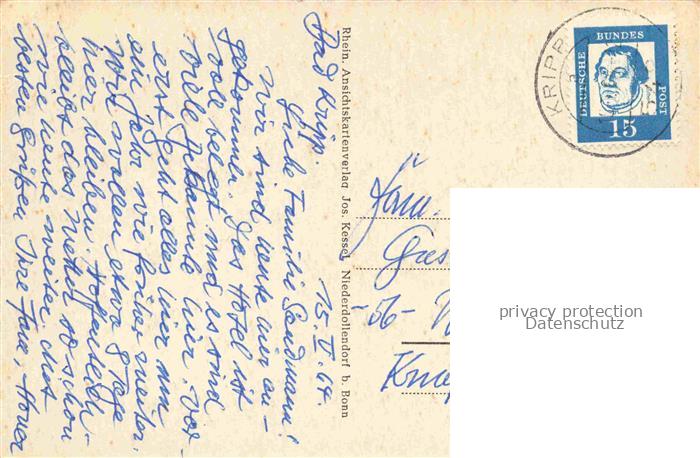 Bad Kripp. 15. V. 64.
Liebe Familie Sandmann!
Wir sind heute hier an-
gekommen. Das Hotel ist
voll belegt und es sind
viele Bekannte hier. Vor-
erst geht alles hier um
ein Jahr wie früher weiter.
Wir wollen etwa 8 Tage
hier bleiben. Hoffentlich
bleibt das Wetter so schön
wie heute weiter. Mit
besten Grüßen Ihre Fam.
Rhein. Ansichtskartenverlag Jos. Kessel, Niederdollendorf b. Bonn
KRIPP
DEUTSCHE BUNDES POST
15
Fam.
-56-
privacy protection
Datenschutz